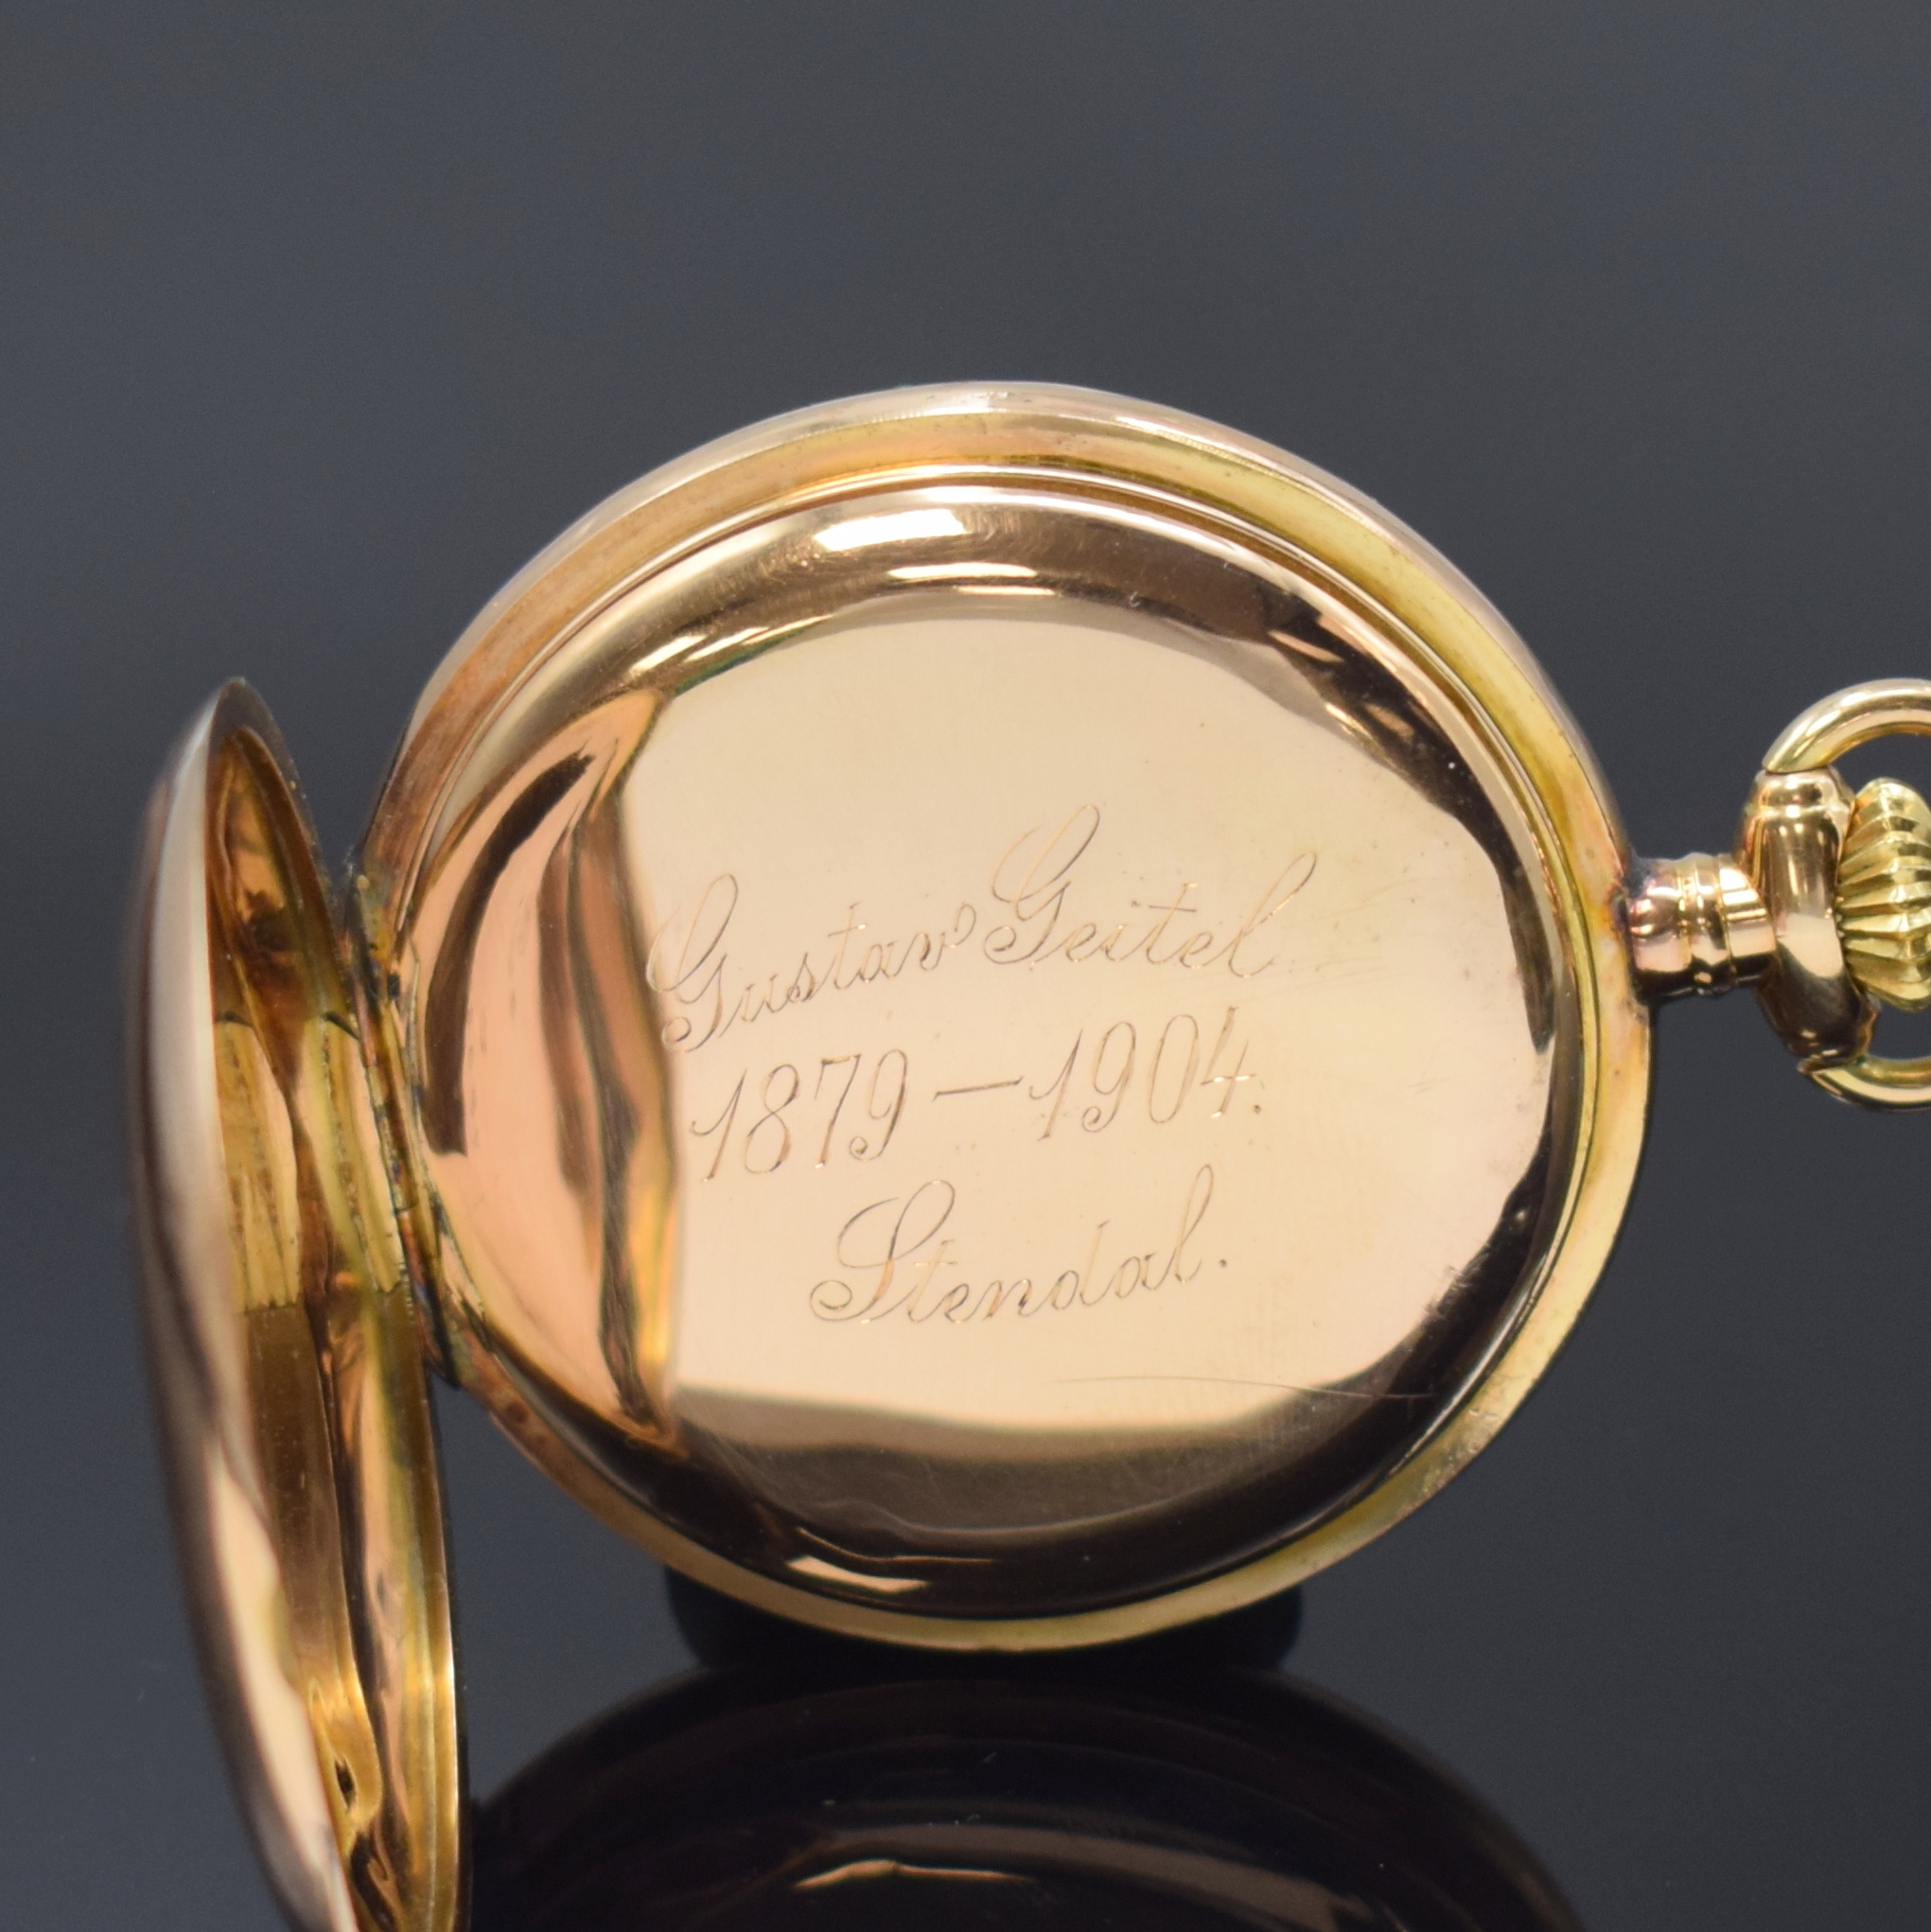 Gustav Geitel
1879 – 1904.
Stendal.